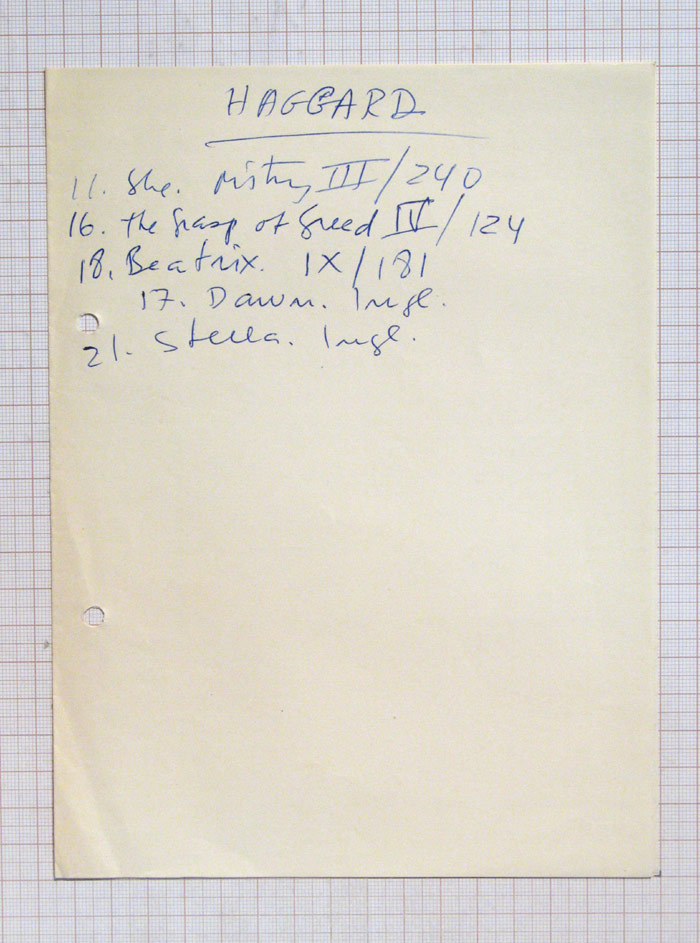 HAGGARD
11. She. Mistry III/240
16. The Grasp of Greed IV/124
18. Beatrix. IX/181
17. Dawn. Ingl.
21. Stella. Ingl.